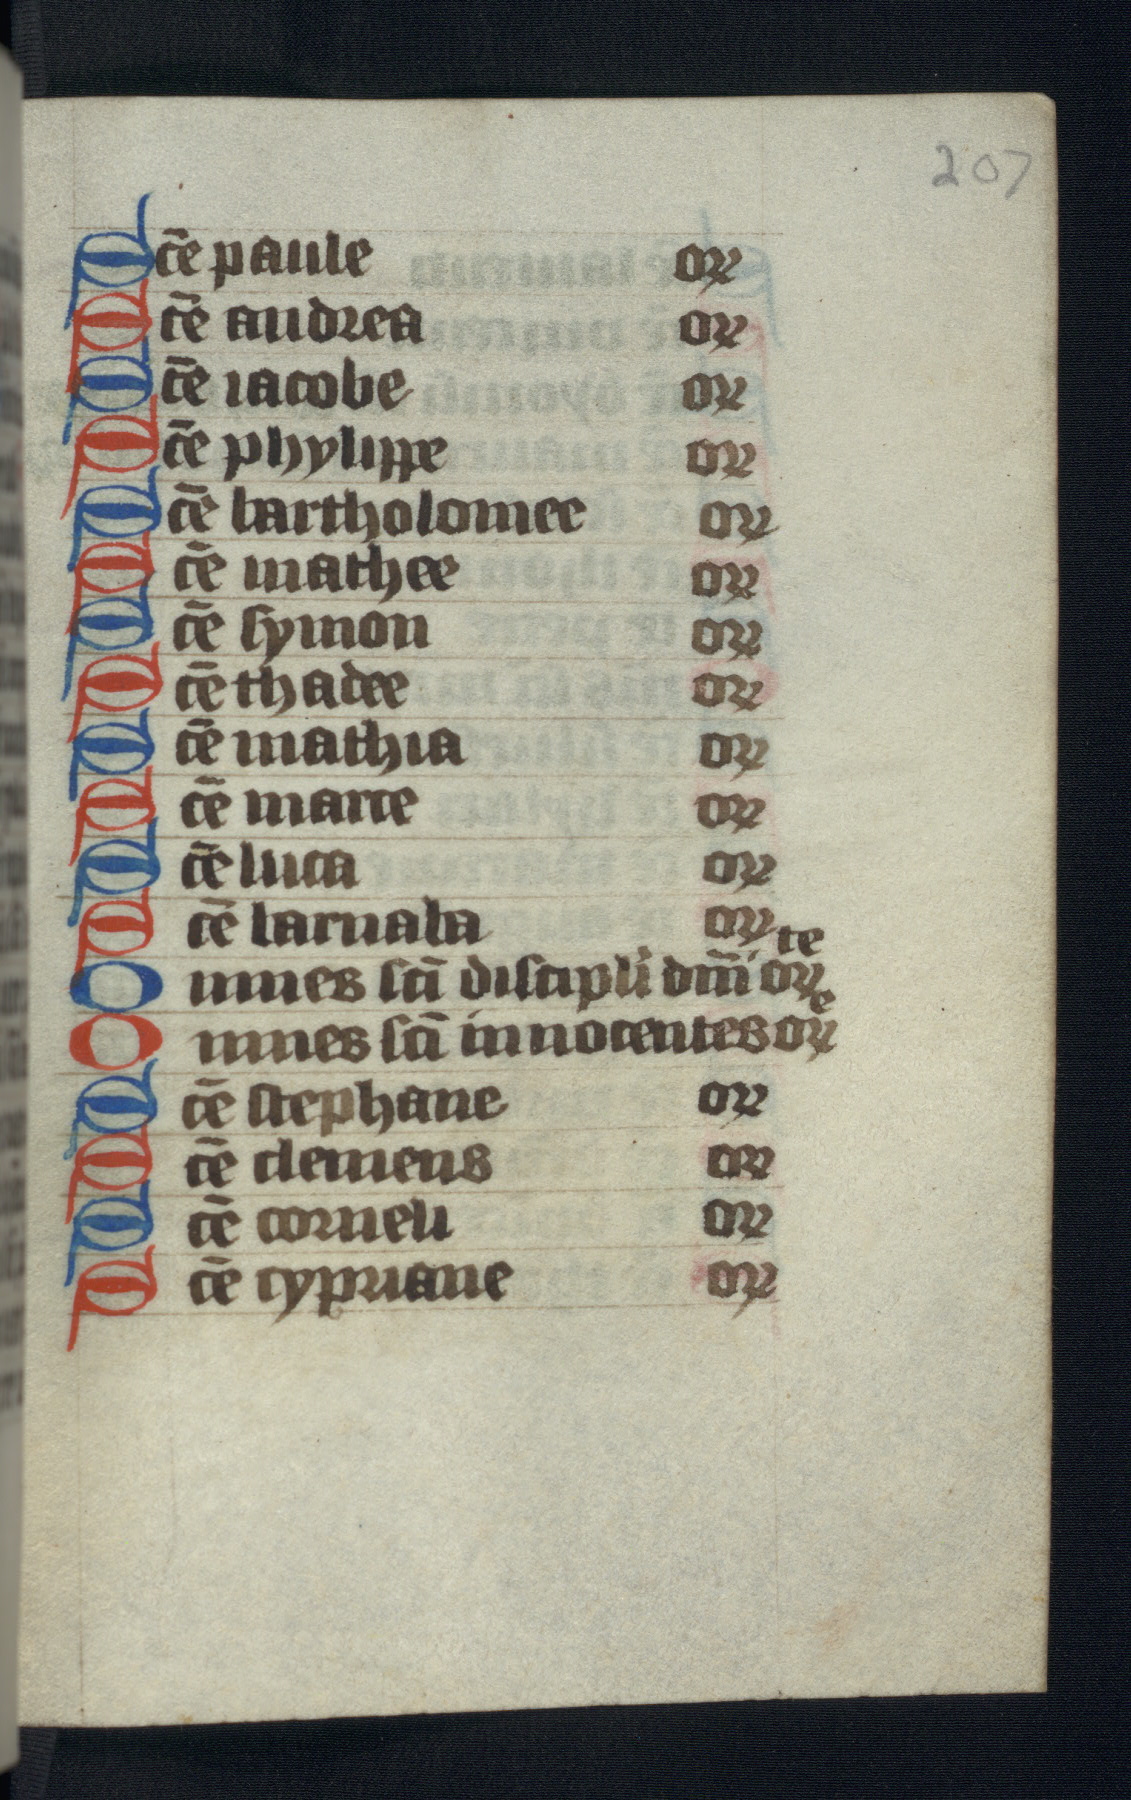 207
Sc̄e paule or
Sc̄e andrea or
Sc̄e iacobe or
Sc̄e phylippe or
Sc̄e bartholomee or
Sc̄e mathee or
Sc̄e symon or
Sc̄e thadee or
Sc̄e mathia or
Sc̄e marce or
Sc̄e luca or
Sc̄e barnaba or
Omnes sc̄i discipuli dn̄i orte
Omnes sc̄i innocentes ore
Sc̄e stephane or
Sc̄e clemens or
Sc̄e corneli or
Sc̄e cypriane or